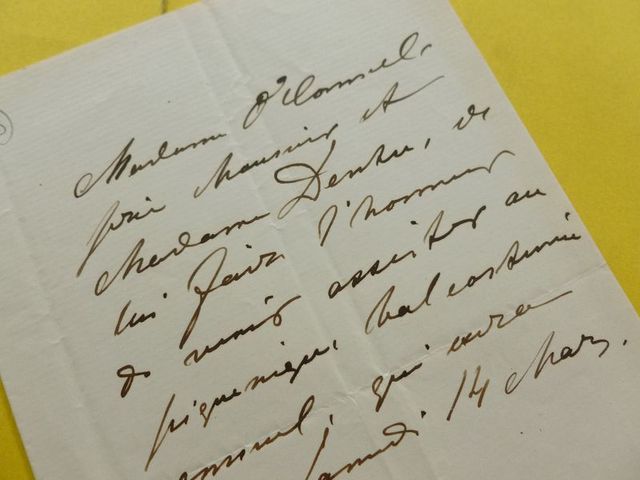 Madame O'Connel,
prie Monsieur et
Madame Dentu, de
lui faire l'honneur
de venir assister au
piquenique, bal costumé
qui aura
samedi 14 Mars.